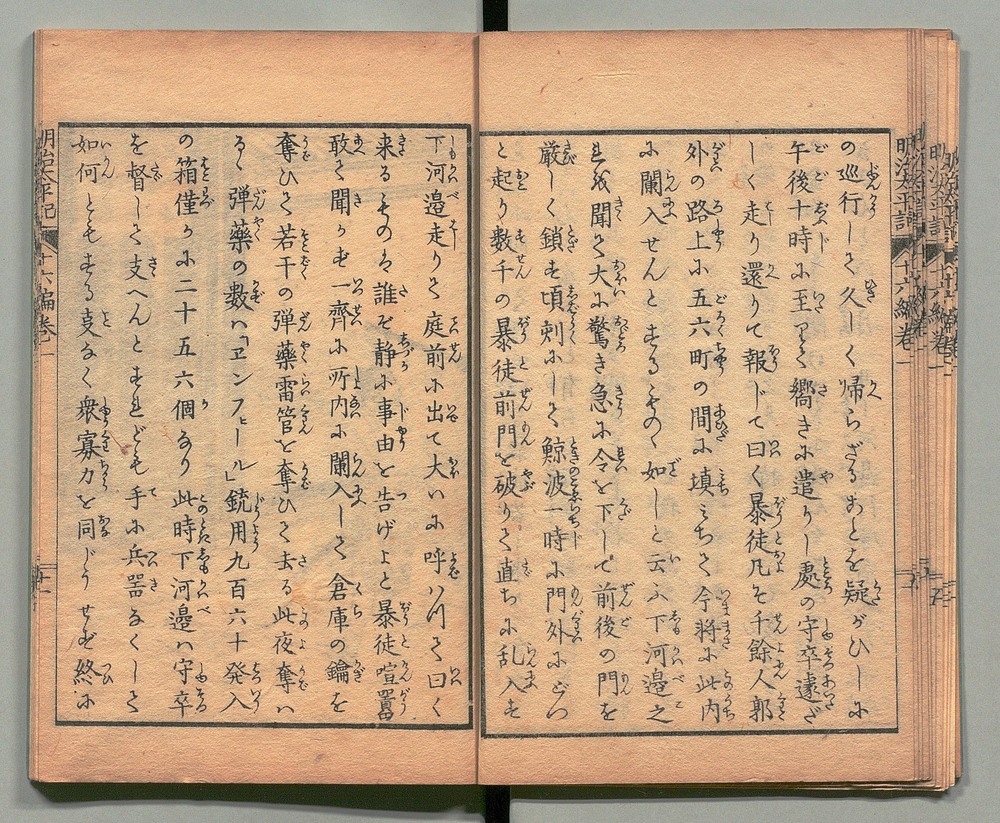 の巡行して久しく帰らざるあとを疑がひしに
午後十時に至りて嚮きに遣りし處の守卒遽ざ
しく走り還りて報じて曰く暴徒凡そ千餘人郭
外の路上に五六町の間に填みちて今将に此内
に闌入せんとするものゝ如しと云ふ下河邉之
を聞て大に驚き急に令を下して前後の門を
厳しく鎖す頃刺にして鯨波一時に門外にどつ
と起り数千の暴徒前門を破りて直ちに乱入す
下河邉走りて庭前に出て大いに呼ハつて曰く
来るものは誰ぞ静に事由を告げよと暴徒喧囂
敢て聞かず一齊に所内に闌入して倉庫の鑰を
奪ひて若干の弾藥雷管を奪ひて去る此夜奪ハ
るゝ弾藥の数ハ「ヱンフヒール」銃用九百六十発入
の箱僅かに二十五六個なり此時下河邉ハ守卒
を督して支へんとすれども手に兵噐なくして
如何ともする事なく衆寡力を同じうせず終に
明治太平記 十六編巻一